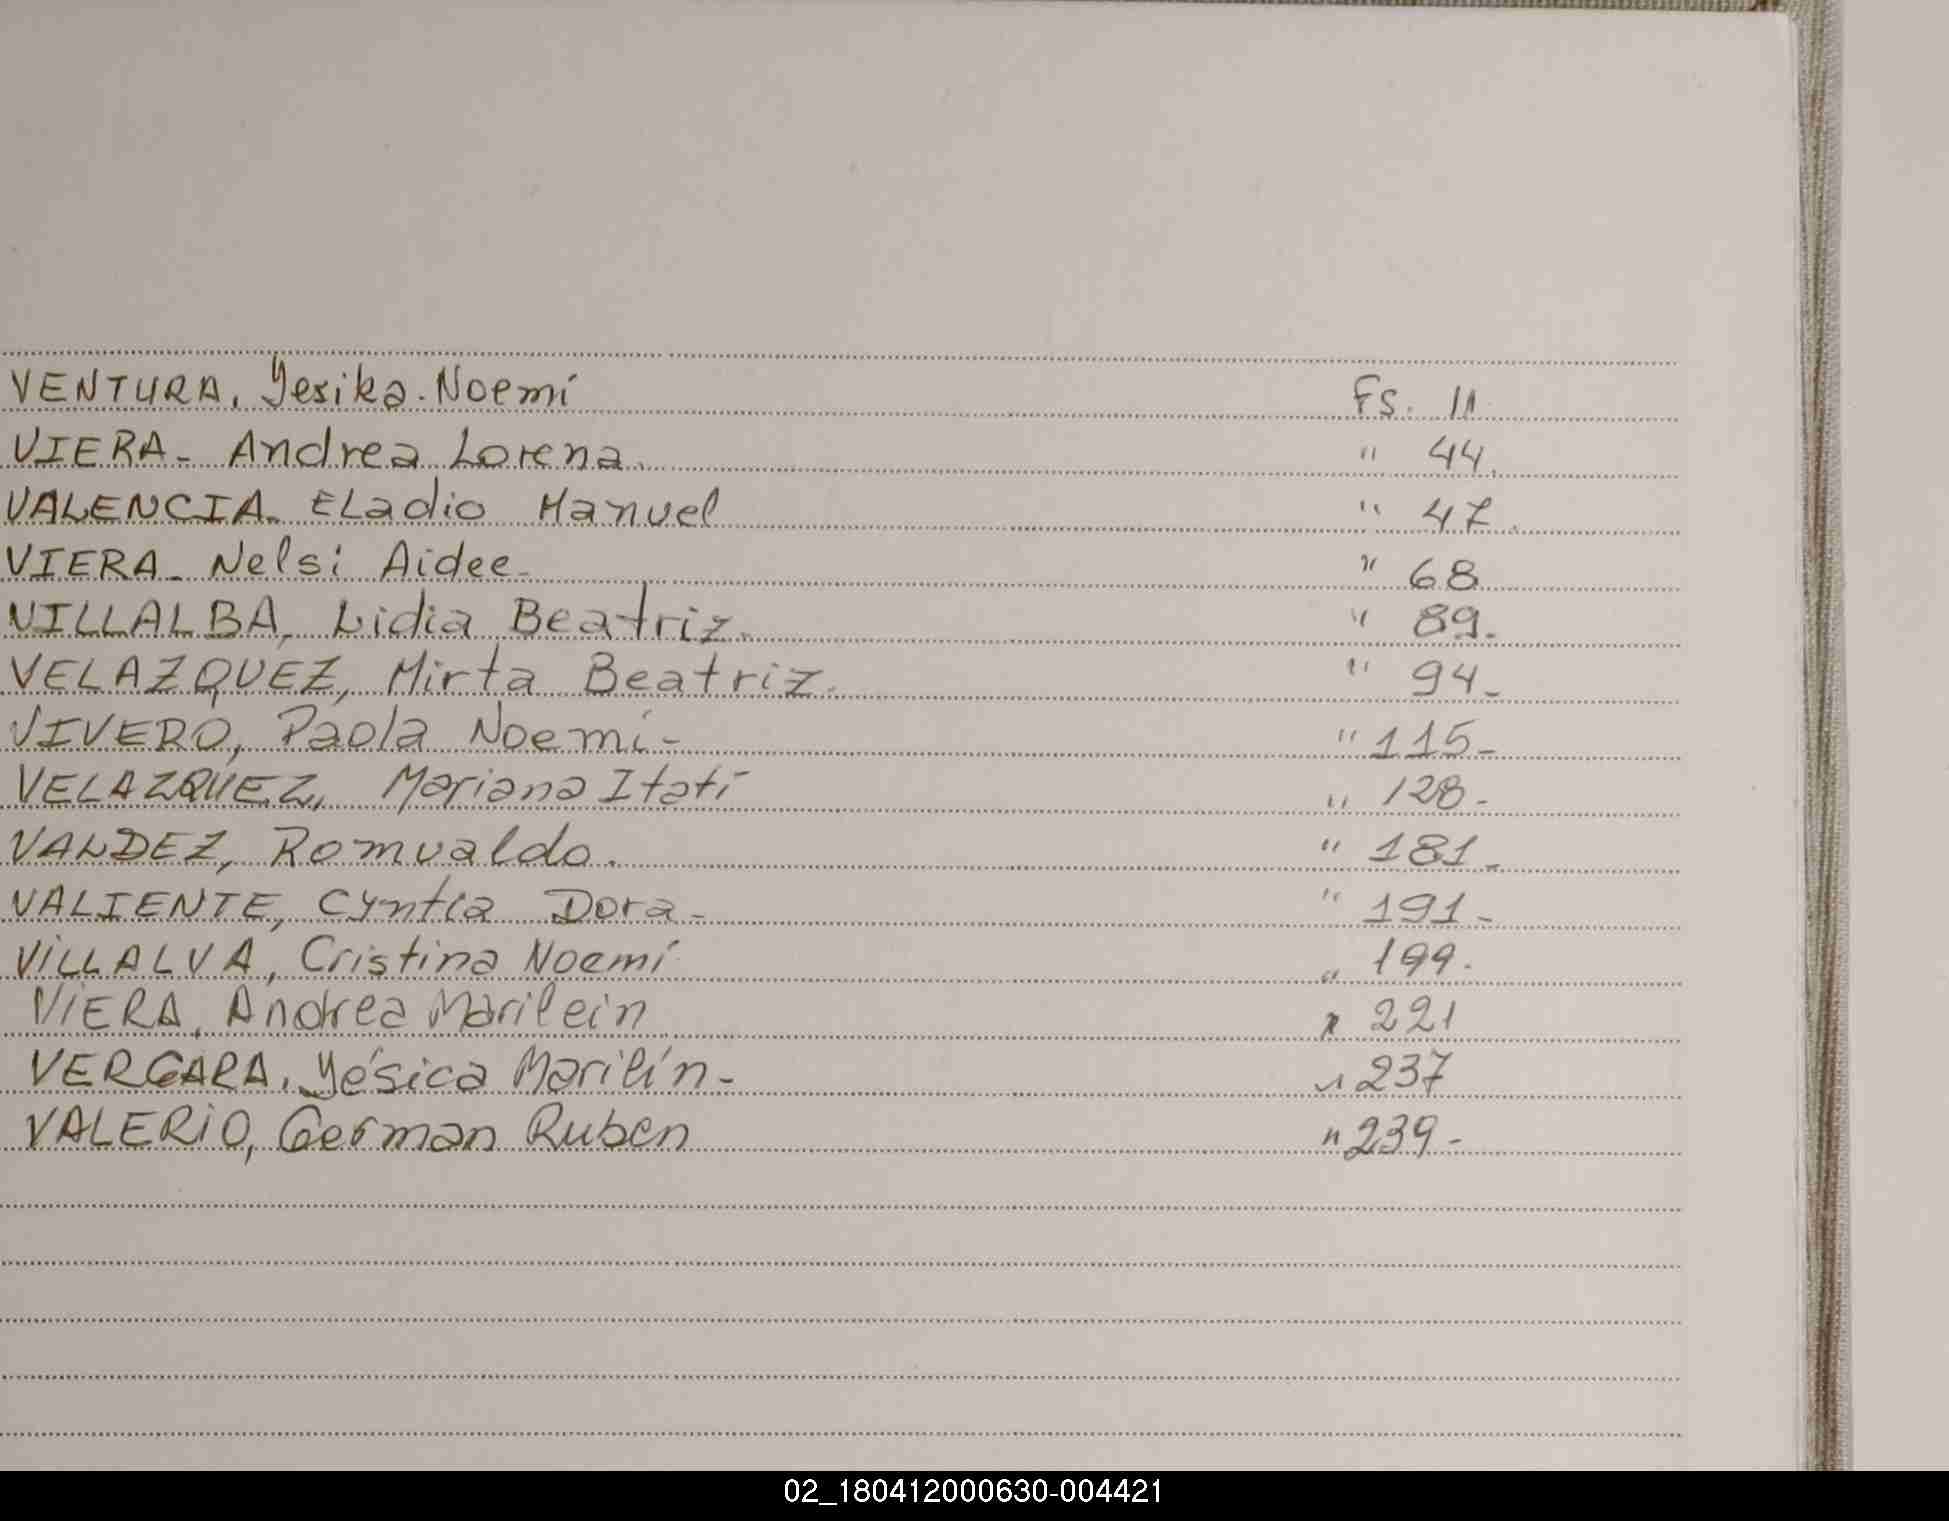 VENTURA, Yesika Noemí Fs. 11
VIERA - Andrea Lorena. " 44.
VALENCIA - Eladio Manuel " 47.
VIERA - Nelsi Aidee - " 68
VILLALBA, Lidia Beatriz. " 89.
VELAZQUEZ, Mirta Beatriz. " 94-
VIVERO, Paola Noemí - " 115-
VELAZQUEZ, Mariana Itatí " 128-
VALDEZ, Romualdo. " 181-
VALIENTE, Cyntia Dora - " 191-
VILLALVA, Cristina Noemí " 199.
VIERA, Andrea Marilein " 221
VERGARA, Yésica Marilín - " 237
VALERIO, German Ruben " 239-
02_180412000630-004421